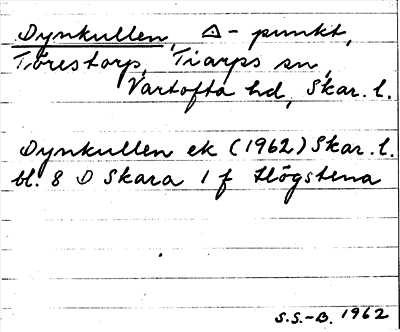 Dynkullen, △-punkt,
Torestorp, Tiarps sn,
Vartofta hd, Skar. l.
Dynkullen ek (1962) Skar. l.
bl. 8 D Skara 1 f Högstena
S.S.-B. 1962